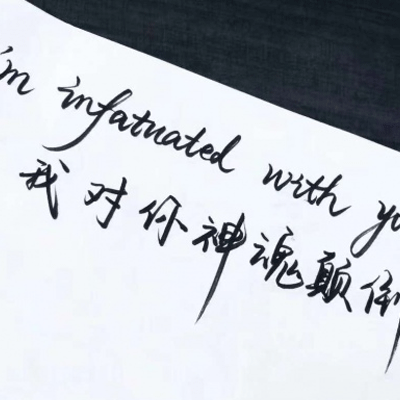 im infatuated with yo
我对你神魂颠倒